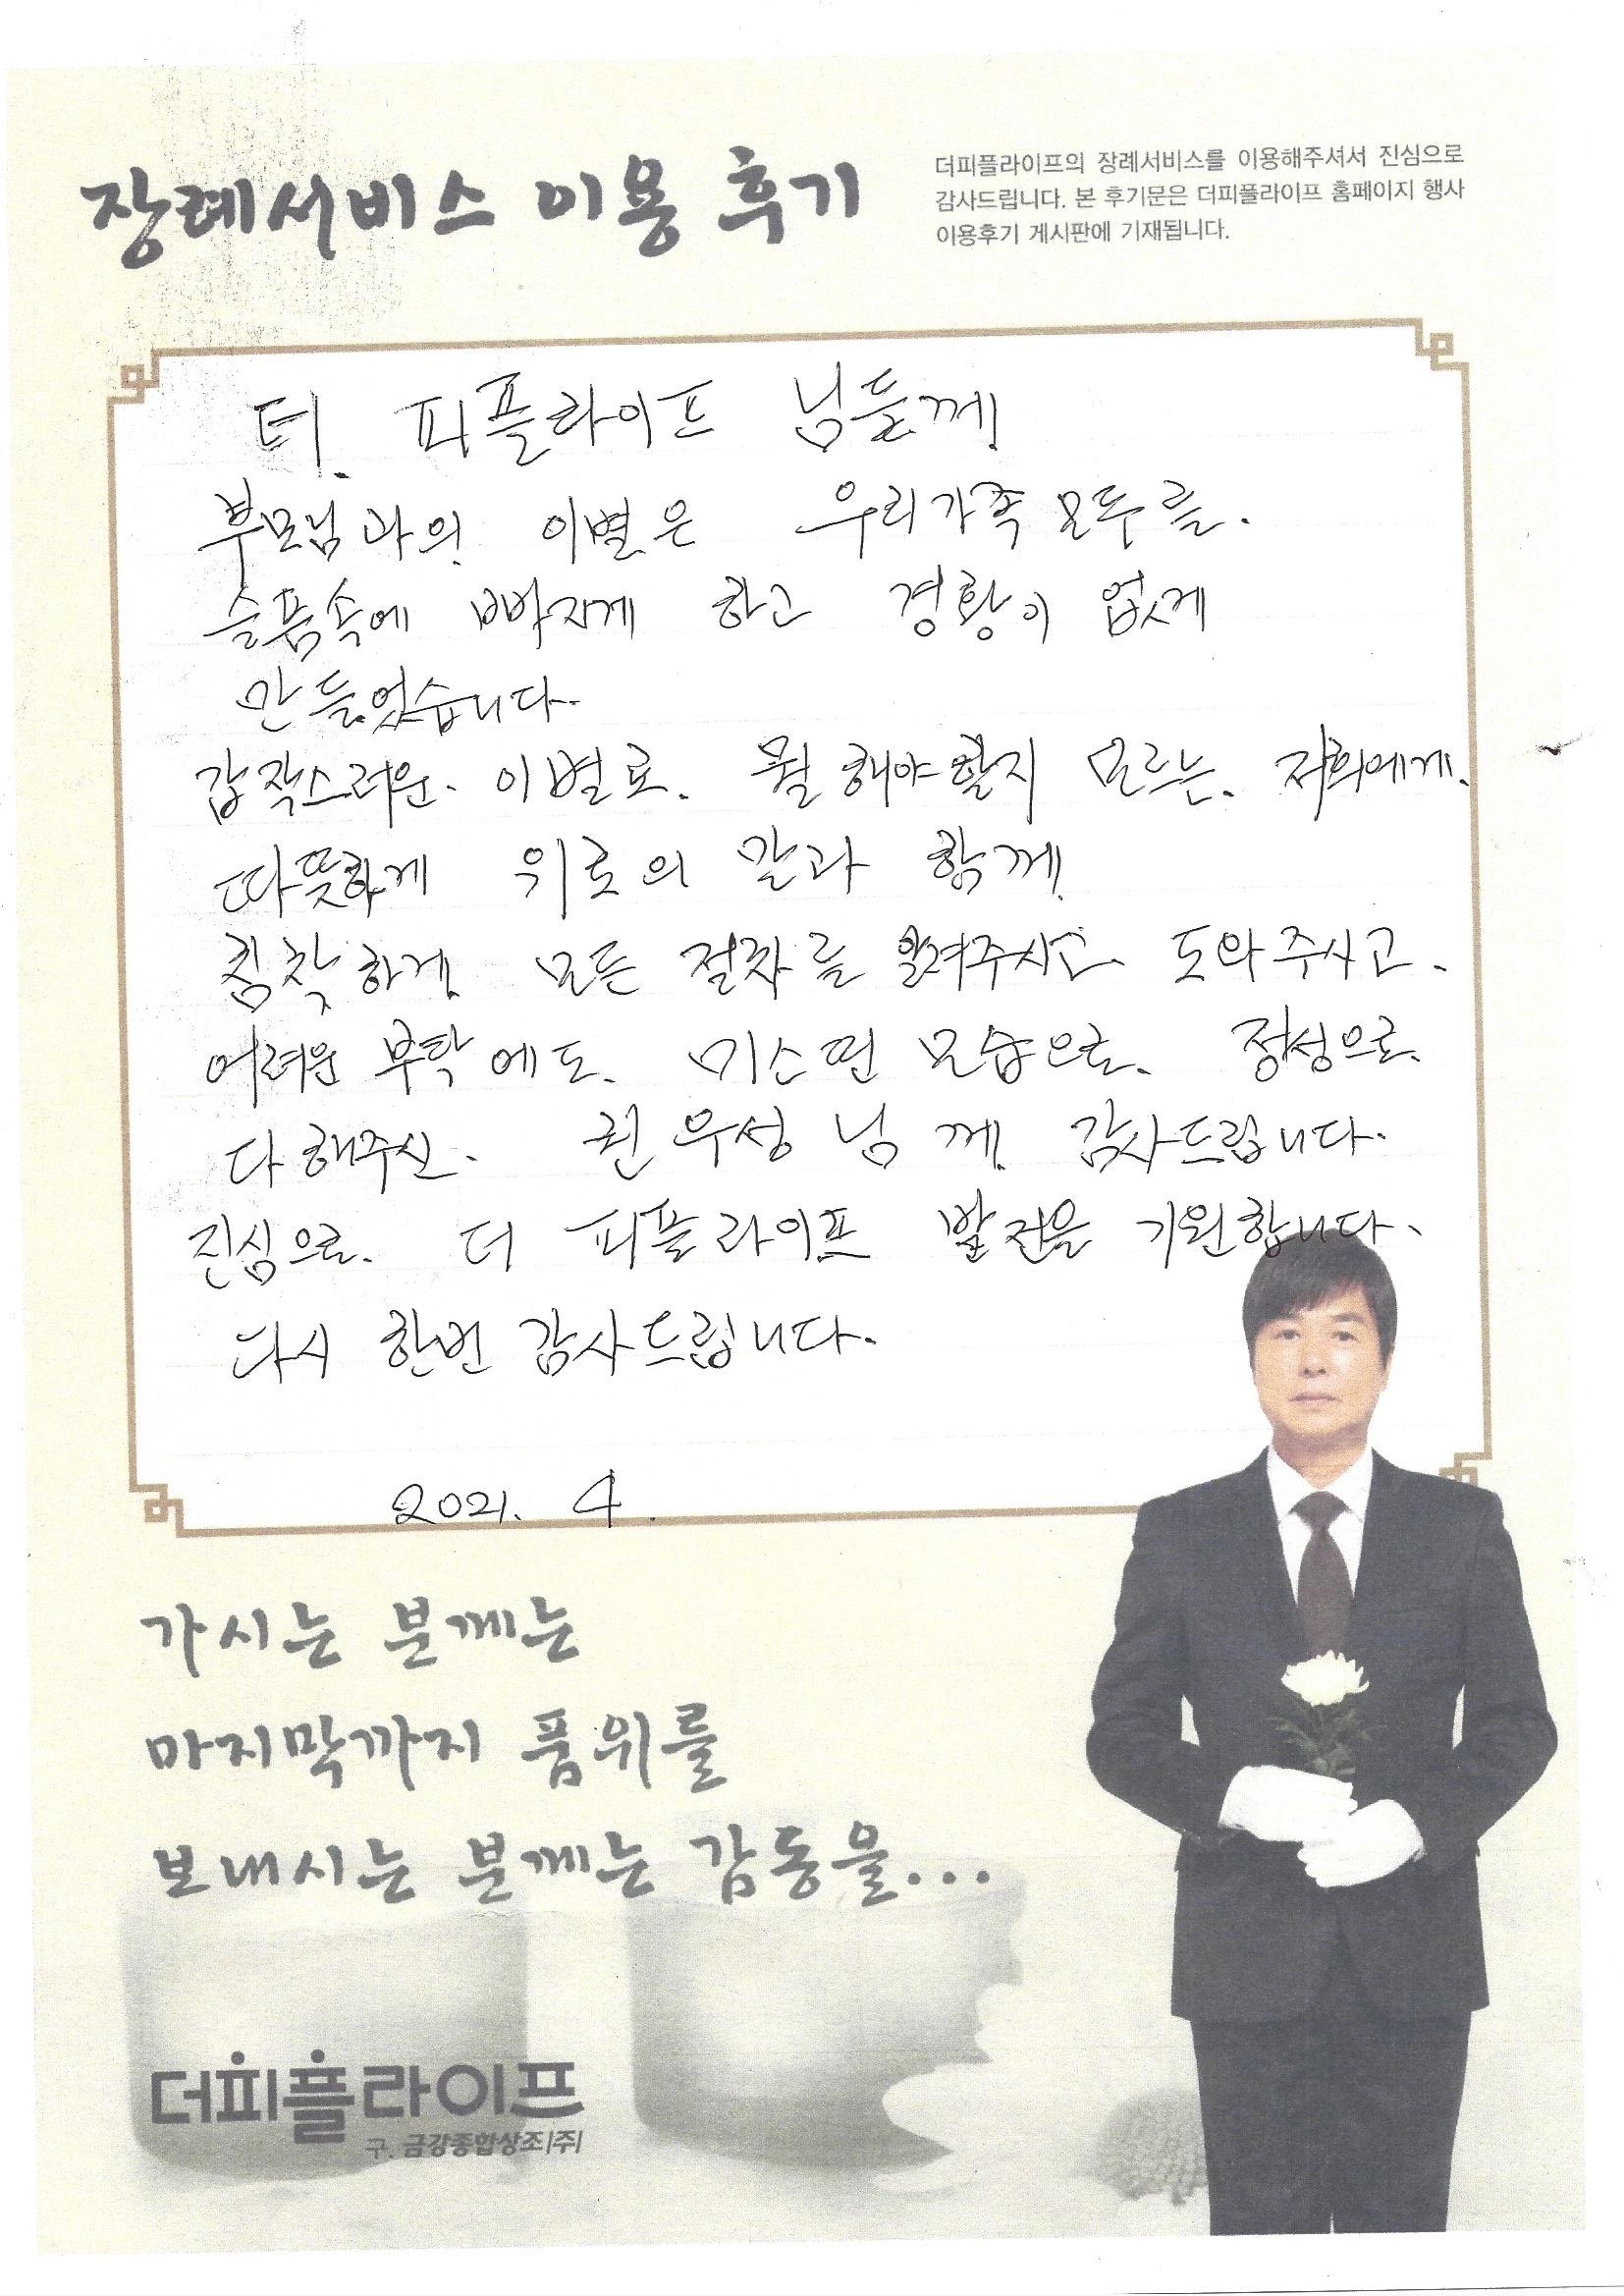 장례서비스 이용 후기
더피플라이프의 장례서비스를 이용해주셔서 진심으로
감사드립니다. 본 후기문은 더피플라이프 홈페이지 행사
이용후기 게시판에 기재됩니다.
더. 피플라이프 님들께
부모님과의 이별은 우리가족 모두를.
슬픔속에 빠지게 하고 경황이 없게
만들었습니다.
갑작스러운. 이별로. 뭘 해야할지 모르는. 저희에게.
따뜻하게 위로의 말과 함께
침착하게 모든 절차를 알려주시고. 도와주시고.
어려운 부탁에도. 미소띤 모습으로. 정성으로.
다해주신. 권우성 님께 감사드립니다.
진심으로. 더 피플라이프 발전을 기원합니다.
다시 한번 감사드립니다.
2021. 4.
가시는 분께는
마지막까지 품위를
보내시는 분께는 감동을...
더피플라이프
구. 금강종합상조(주)